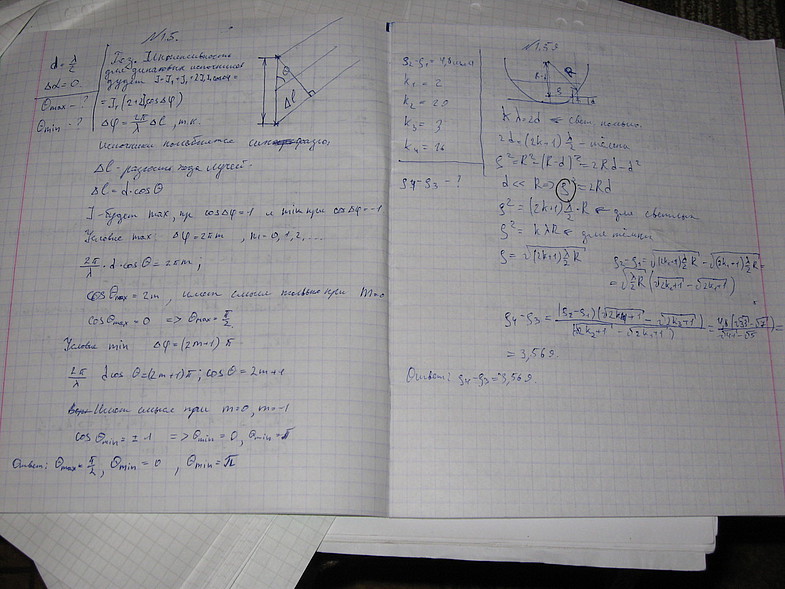 №1.5.
d = λ/2
Δα = 0.
Θmax - ?
Θmin - ?
Інтенсивность
для динаковых источников
будет I = I₁ + I₂ + 2I₁I₂cosα =
= I₁(2+2)cosΔφ)
Δφ = 2π/λ Δl, т.к.
Θ
Δl
Источники колеблются
Δl - разность хода лучей.
Δl = d·cosΘ
I - будет max, пр cosΔφ = 1 и min при cosΔφ = -1
Условие max Δφ = 2πm, m = 0, 1, 2, ...
2π/λ · d · cosΘ = 2πm;
cosΘmax = 2m, имеет смысл только при m=0
cosΘmax = 0 => Θmax = π/2
Условие min Δφ = (2m+1)π
2π/λ dcosΘ = (2m+1)π; cosΘ = 2m+1
Имеет смысл при m=0, m=-1
cosΘmin = ±1 => Θmin = 0, Θmin = π
Ответ: Θmax = π/2, Θmin = 0, Θmin = π
№1.59
k₁ = 2
k₂ = 20
k₃ = 3
k₄ = 16
ρ₄-ρ₃ - ?
R
kλ = 2d
2d = (2k+1) λ/2 - тёмная
ρ² = R² - (R-d)² = 2Rd - d²
d << R => ρ² = 2Rd
ρ² = (2k+1) λ/2 · R для светлых
ρ² = kλR для тёмных
ρ = √((2k+1) λ/2 R)
ρ₂-ρ₁ = √((2k₂+1) λ/2 R) - √((2k₁+1) λ/2 R) =
= √(λ/2 R) (√(2k₂+1) - √(2k₁+1))
ρ₄-ρ₃ = (ρ₂-ρ₁)(√(2k₄+1) - √(2k₃+1)) / (√(2k₂+1) - √(2k₁+1)) = 4,8(√33-√7) / (√41-√5) =
= 3,569.
Ответ: ρ₄-ρ₃ = 3,569.